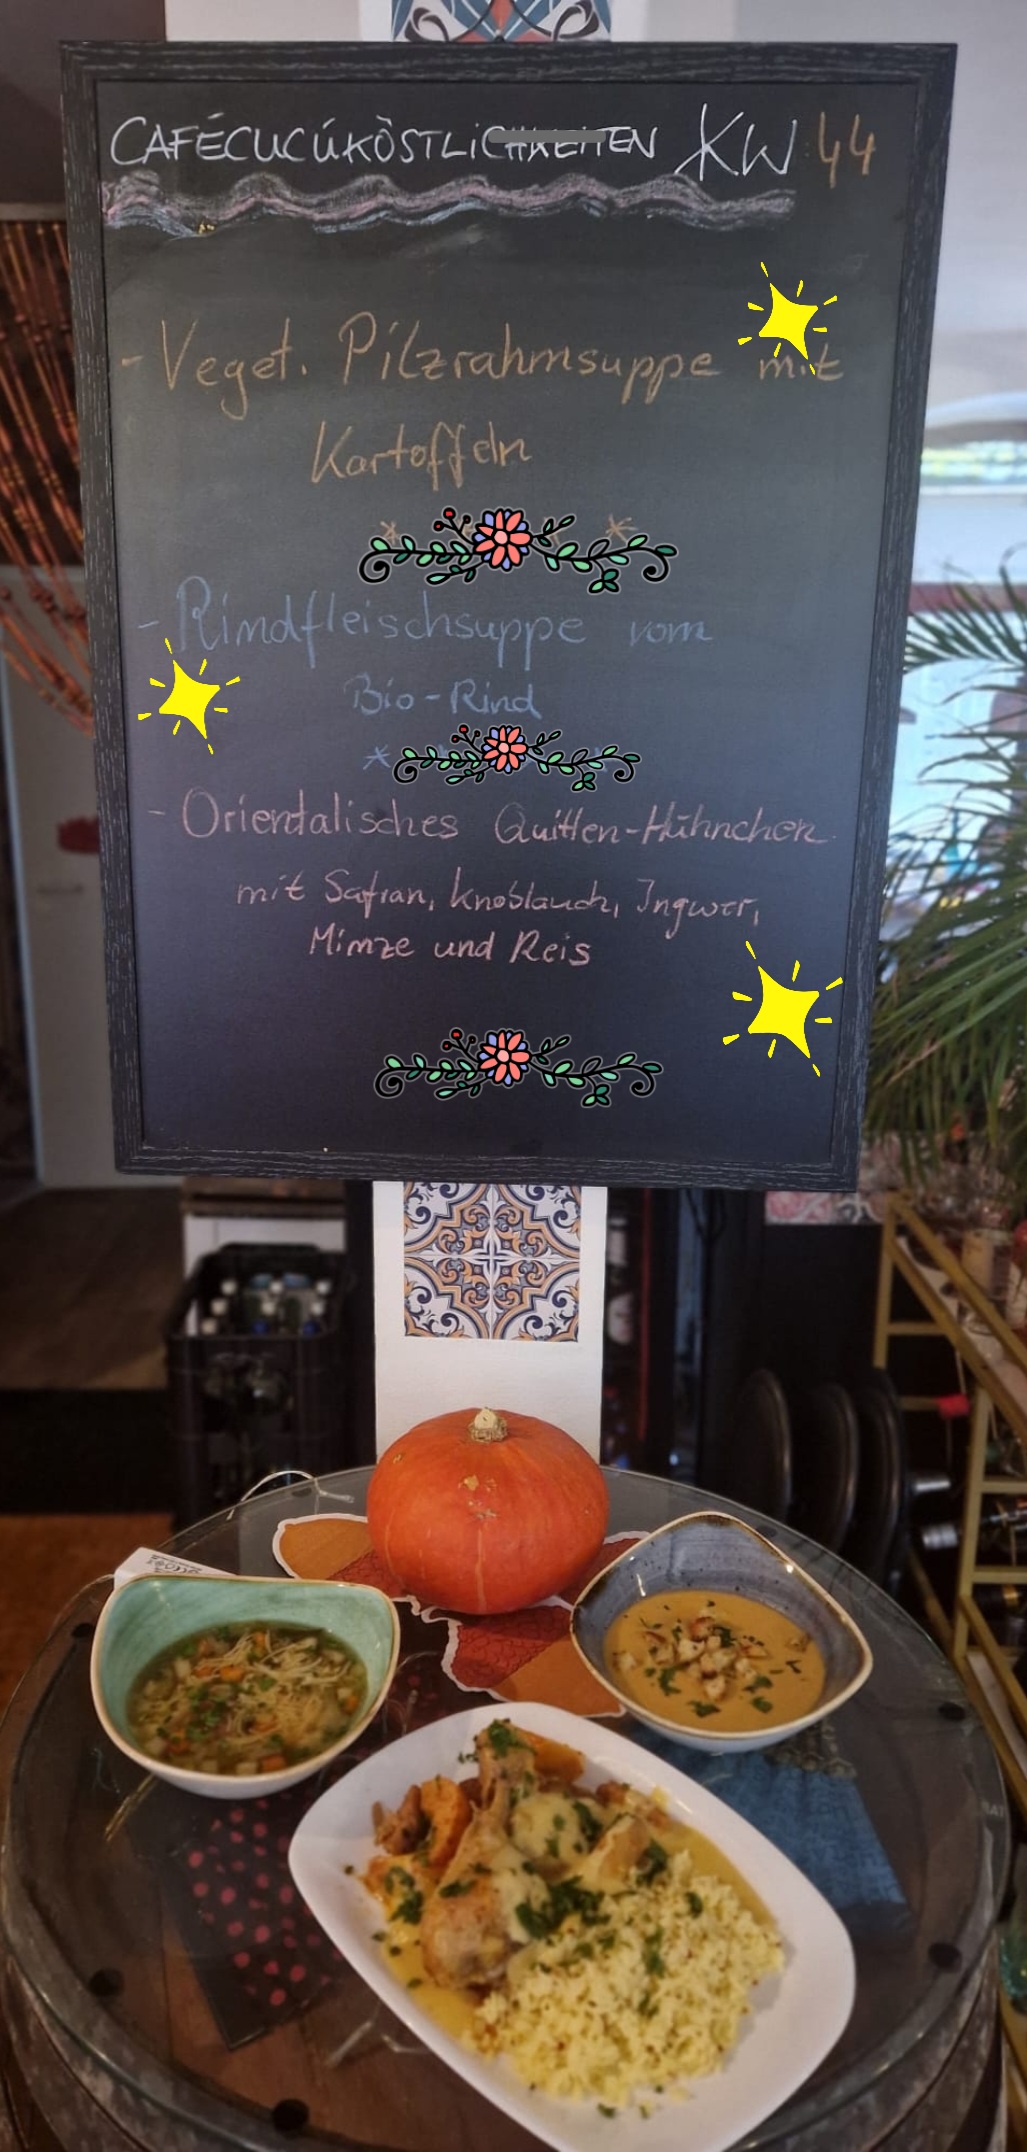 CAFÉCUCÚKÖSTLICHKEITEN KW 44
- Veget. Pilzrahmsuppe mit
Kartoffeln
- Rindfleischsuppe vom
Bio-Rind
- Orientalisches Quitten-Hühnchen
mit Safran, Knoblauch, Ingwer,
Minze und Reis